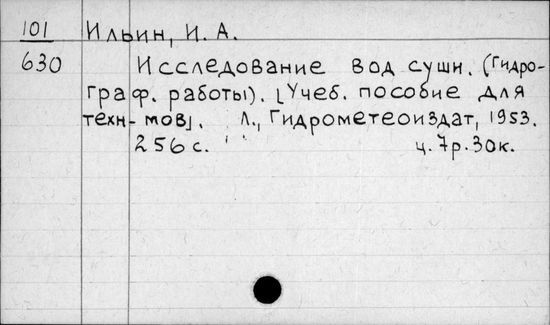 101 Ильин, И. А.
630 Исследование вод суши. (Гидро-
граф. работы). [Учеб. пособие для
техн-мов]. Л., Гидрометеоиздат, 1953.
256 с. ц. 7р. 30к.